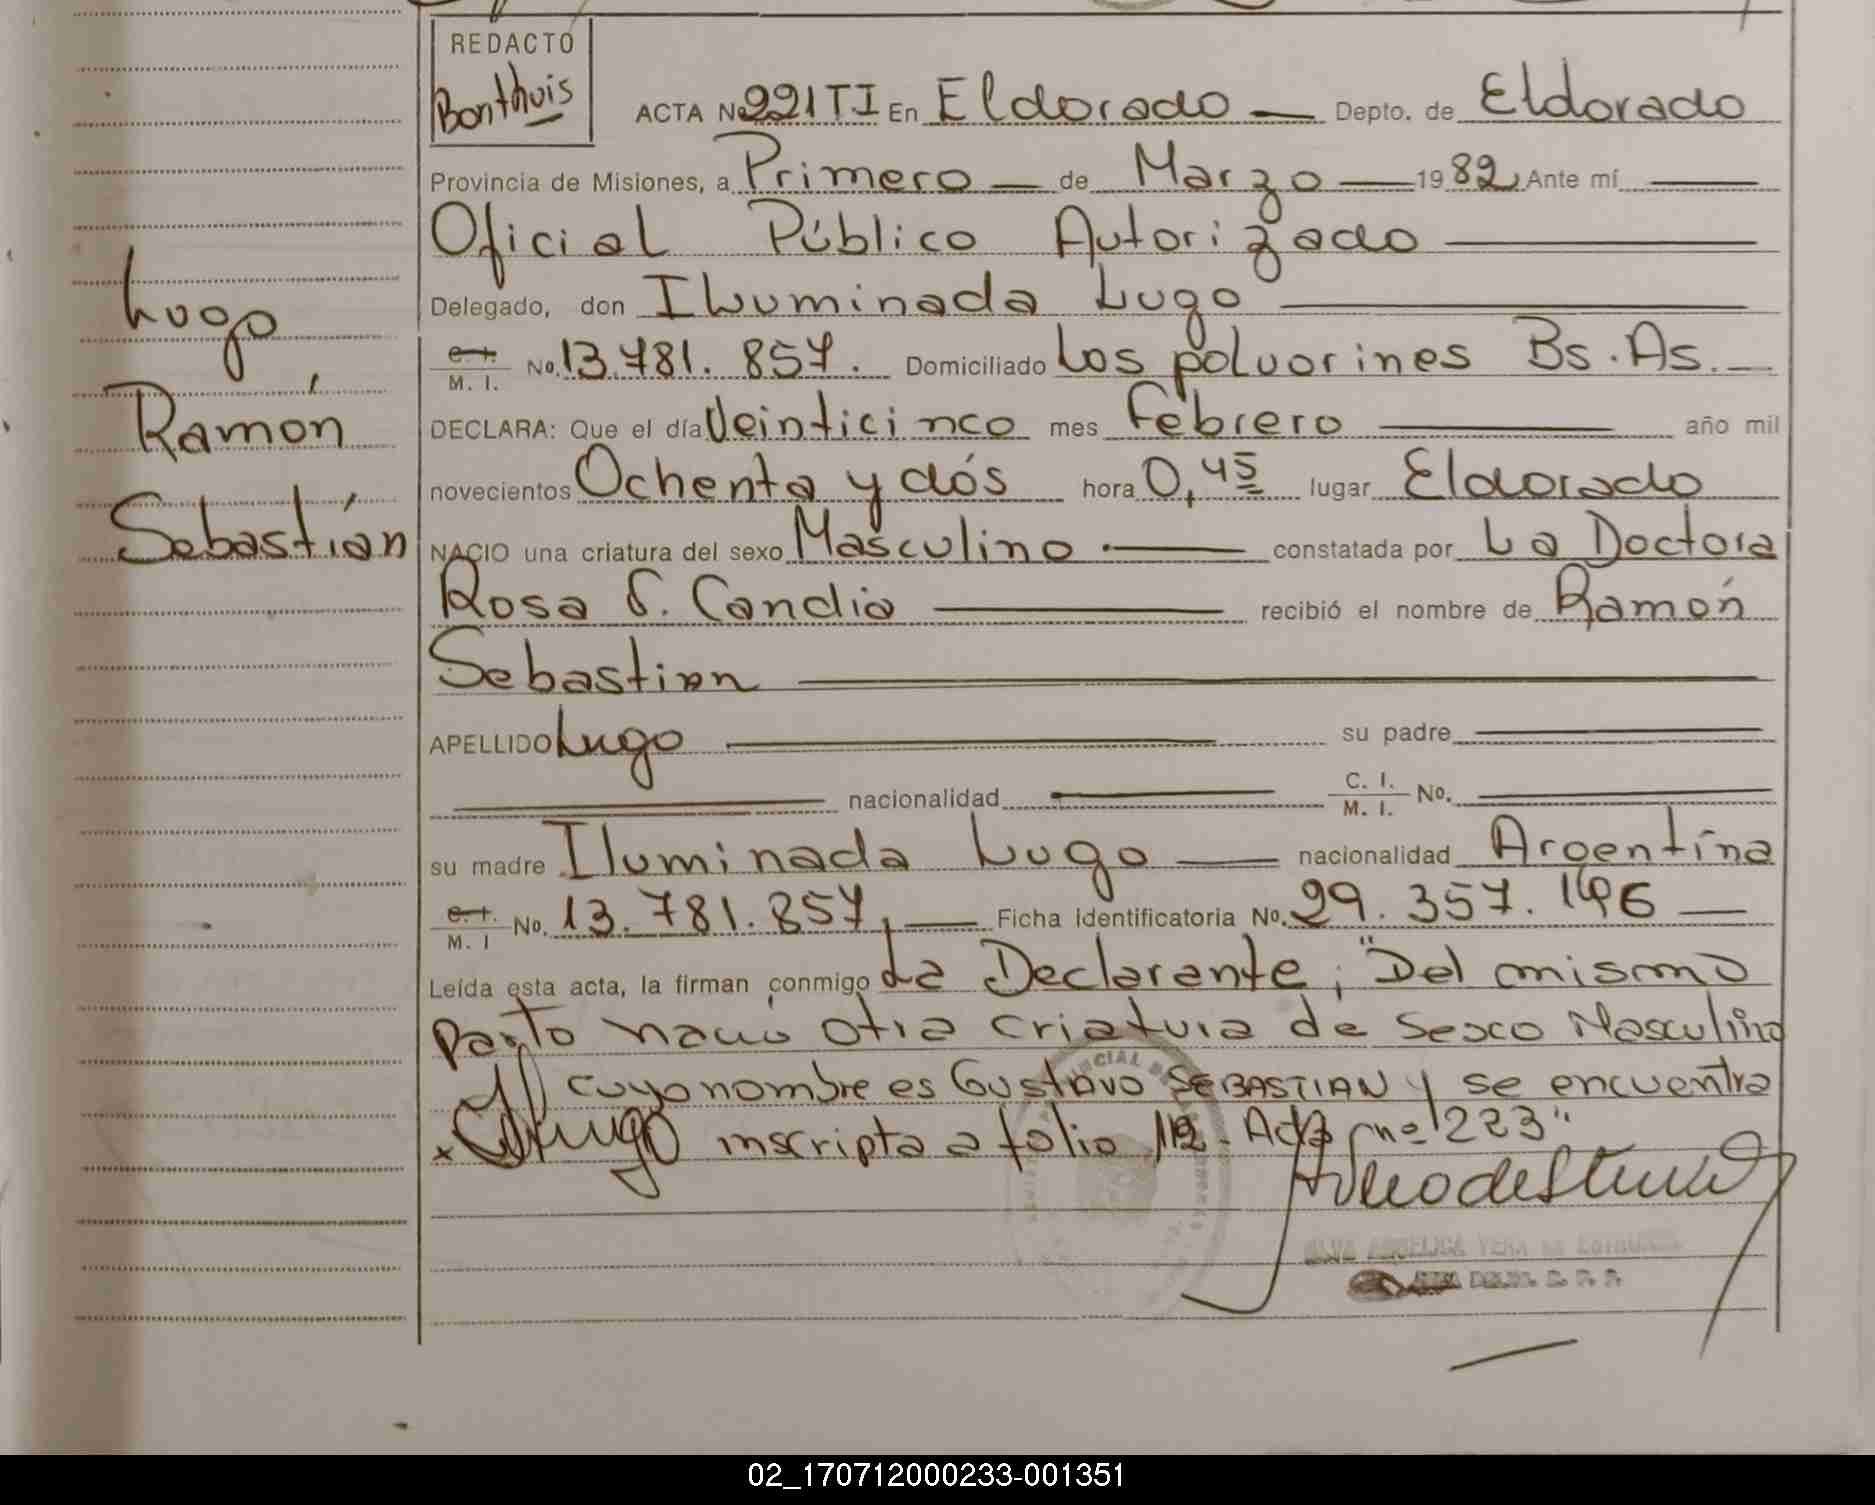 REDACTO
Bonthuis
ACTA No 221TI En Eldorado — Depto. de Eldorado
Provincia de Misiones, a Primero — de Marzo — 1982, Ante mí —
Oficial Público Autorizado
Delegado, don Iluminada Lugo
C. I. / M. I. No. 13.781.857. Domiciliado Los polvorines Bs.As.
DECLARA: Que el día Veinticinco mes Febrero año mil
novecientos Ochenta y dós hora 0,45 lugar Eldorado
NACIO una criatura del sexo Masculino constatada por La Doctora
Rosa S. Candia recibió el nombre de Ramón
Sebastian
APELLIDO Lugo su padre
nacionalidad C. I. / M. I. No.
su madre Iluminada Lugo — nacionalidad Argentina
C. I. / M. I No. 13.781.857, — Ficha Identificatoria No. 29.357.146 —
Leída esta acta, la firman conmigo La Declarante; "Del mismo
parto nació otra criatura de sexo Masculino
cuyo nombre es Gustavo SEBASTIAN y se encuentra
x Lugo inscripta a folio 112 - Acta nº 223"
Lugo
Ramón
Sebastián
02_170712000233-001351